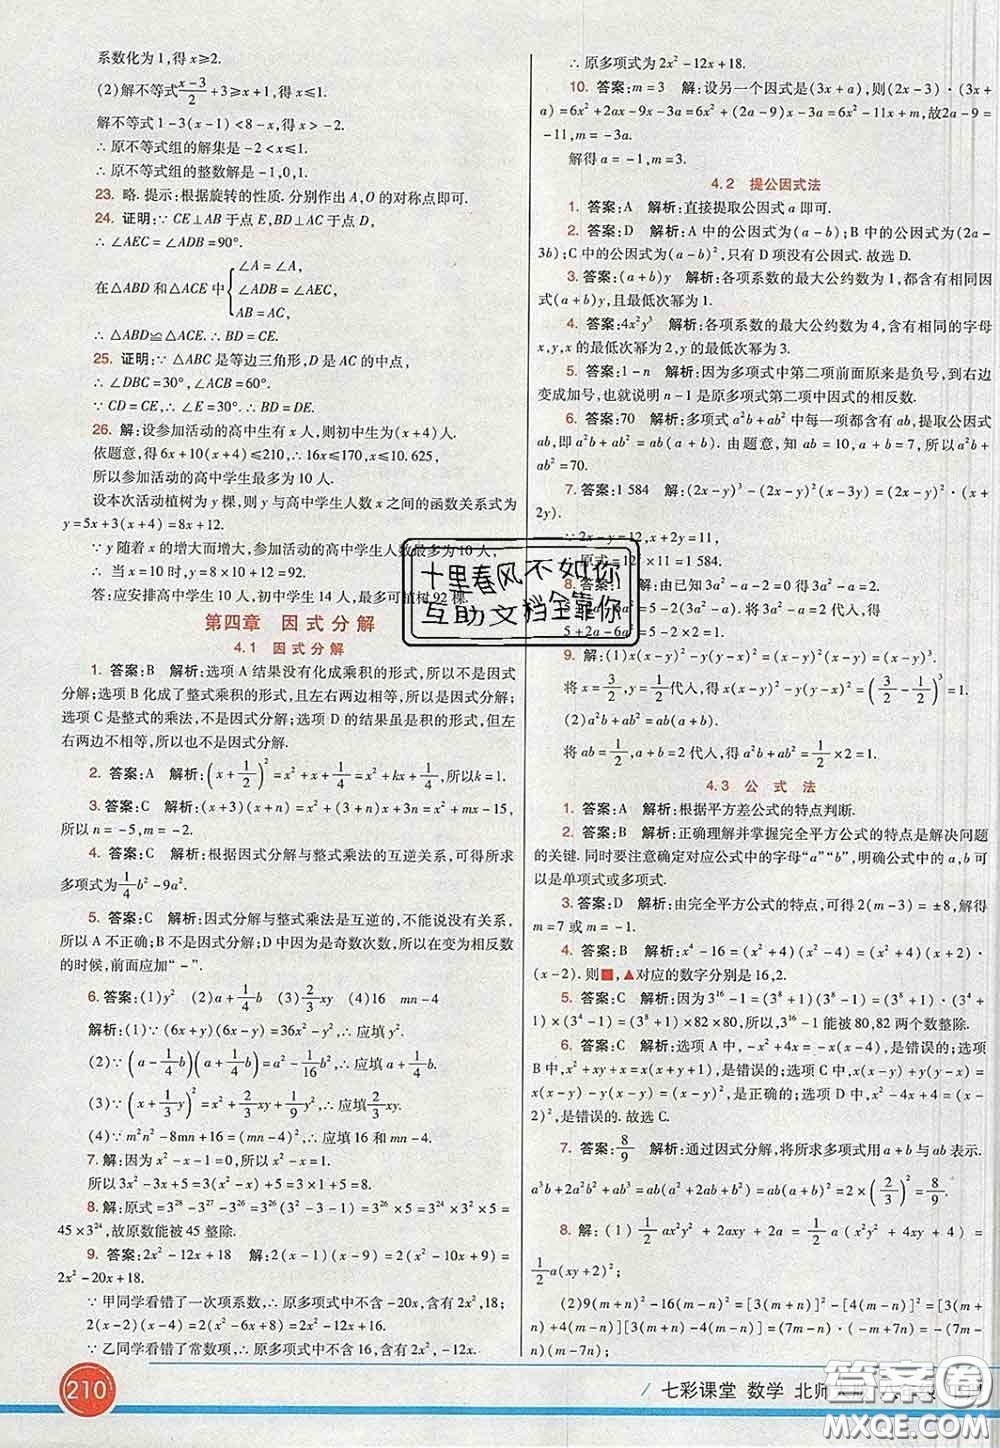 系数化为1,得x≥2.
(2)解不等式\frac{x-3}{2}+3≥x+1,得x≤1.
解不等式1-3(x-1)<8-x,得x>-2.
∴原不等式组的解集是-2<x≤1.
∴原不等式组的整数解是-1,0,1.
23. 略. 提示:根据旋转的性质. 分别作出A,O的对称点即可.
24. 证明:∵CE⊥AB于点E,BD⊥AC于点D,
∴∠AEC=∠ADB=90°.
∠A=∠A,
在△ABD和△ACE中{∠ADB=∠AEC,
AB=AC,
∴△ABD≌△ACE.∴BD=CE.
25. 证明:∵△ABC是等边三角形,D是AC的中点,
∴∠DBC=30°,∠ACB=60°.
∵CD=CE,∴∠E=30°,∴BD=DE.
26. 解:设参加活动的高中生有x人,则初中生为(x+4)人.
依题意,得6x+10(x+4)≤210,∴16x≤170,∴x≤10.625,
所以参加活动的高中学生最多为10人.
设本次活动植树为y棵,则y与高中学生人数x之间的函数关系式为
y=5x+3(x+4)=8x+12.
∵y随着x的增大而增大,参加活动的高中学生人数最多为10人,
∴当x=10时,y=8×10+12=92.
答:应安排高中学生10人,初中学生14人,最多可植树92棵.
第四章 因式分解
4.1 因式分解
1. 答案:B 解析:选项A结果没有化成乘积的形式,所以不是因式
分解;选项B化成了整式乘积的形式,且左右两边相等,所以是因式分解;
选项C是整式的乘法,不是因式分解;选项D的结果虽是积的形式,但左
右两边不相等,所以也不是因式分解.
2. 答案:A 解析:(x+\frac{1}{2})²=x²+x+\frac{1}{4}=x²+kx+\frac{1}{4},所以k=1.
3. 答案:C 解析:(x+3)(x+n)=x²+(3+n)x+3n=x²+mx-15,
所以n=-5,m=-2.
4. 答案:C 解析:根据因式分解与整式乘法的互逆关系,可得所求
多项式为\frac{1}{4}b²-9a².
5. 答案:C 解析:因式分解与整式乘法是互逆的,不能说没有关系,
所以A不正确;B中没有因式分解;D中因为是奇数次数,所以在变为相反数
的时候,前面应加“-”.
6. 答案:(1)y² (2)a+\frac{1}{4}b (3)\frac{2}{3}xy (4)16 mn-4
解析:(1)∵(6x+y)(6x-y)=36x²-y²,∴应填y².
(2)∵(a-\frac{1}{4}b)(a+\frac{1}{4}b)=a²-\frac{1}{16}b²,∴应填a+\frac{1}{4}b.
(3)∵(x+\frac{1}{3}y)²=x²+\frac{2}{3}xy+\frac{1}{9}y²,∴应填\frac{2}{3}xy.
(4)∵m²n²-8mn+16=(mn-4)²,∴应填16和mn-4.
7. 解:因为x²-x-1=0,所以x²-x=1.
所以3x²-3x+5=3(x²-x)+5=3×1+5=8.
8. 解:原式=3²⁸-3²⁷-3²⁶=3²⁶(3²-3-1)=3²⁶×5=3²⁴×3²×5=
45×3²⁴,故原数能被45整除.
9. 答案:2x²-12x+18 解:2(x-1)(x-9)=2(x²-10x+9)=
2x²-20x+18.
∵甲同学看错了一次项系数,∴原多项式中不含-20x,含2x²,18;
2(x-2)(x-4)=2(x²-6x+8)=2x²-12x+16.
∵乙同学看错了常数项,∴原多项式中不含16,含2x²,-12x.
∴原多项式为2x²-12x+18.
10. 答案:m=3 解:设另一个因式是(3x+a),则(2x-3)·(3x+
a)=6x²+2ax-9x-3a=6x²+(2a-9)x-3a=6x²-11x+m,故2a-9=
-11,m=-3a.
解得a=-1,m=3.
4.2 提公因式法
1. 答案:A 解析:直接提取公因式a即可.
2. 答案:D 解析:A中的公因式为(a-b);B中的公因式为(2a-
3b);C中的公因式为(a-b)²,只有D项没有公因式. 故选D.
3. 答案:(a+b)y 解析:各项系数的最大公约数为1,都含有相同因
式(a+b)y,且最低次幂为1.
4. 答案:4x²y³ 解析:各项系数的最大公约数为4,含有相同的字母
x,y,x的最低次幂为2,y的最低次幂为3.
5. 答案:1-n 解析:因为多项式中第二项前面原来是负号,到右边
变成加号,也就说明n-1是原多项式第二项中因式的相反数.
6. 答案:70 解析:多项式a²b+ab²中每一项都含有ab,提取公因式
ab,即a²b+ab²=ab(a+b). 由题意,知ab=10,a+b=7,所以a²b+
ab²=70.
7. 答案:1 584 解:(2x-y)³-(2x-y)²(x-3y)=(2x-y)²·(x+
2y).
∵2x-y=12,x+2y=11,
∴原式=12²×11=1 584.
解:由已知3a²-a-2=0,得3a²-a=2,
5+2a-6a²=5-2(3a²-a)=5-2×2=1.
9. 解:(1)x(x-y)²-y(x-y)²=(x-y)²(x-y)=(x-y)³.
将x=\frac{3}{2},y=\frac{1}{2}代入,得x(x-y)²-y(x-y)²=(\frac{3}{2}-\frac{1}{2})³=1.
(2)a²b+ab²=ab(a+b).
将ab=\frac{1}{2},a+b=2代入,得a²b+ab²=\frac{1}{2}×2=1.
4.3 公式法
1. 答案:A 解析:根据平方差公式的特点判断.
2. 答案:B 解析:正确理解并掌握完全平方公式的特点是解决问题
的关键. 同时要注意确定对应公式中的字母“a”“b”,明确公式中的a,b可
以是单项式或多项式.
3. 答案:D 解析:由完全平方公式的特点,可得2(m-3)=±8,解得
m=7或m=-1.
4. 答案:B 解析:x⁴-16=(x²+4)(x²-4)=(x²+4)(x+2)·
(x-2). 则■,▲对应的数字分别是16,2.
5. 答案:C 解析:因为3¹⁶-1=(3⁸+1)(3⁸-1)=(3⁸+1)·(3⁴
+1)(3⁴-1)=(3⁸+1)×82×80,所以,3¹⁶-1能被80,82两个数整除.
6. 答案:C 解析:选项A中,-x²+4x=-x(x-4),是错误的;选项B
中,x²+xy+x=x(x+y+1),是错误的;选项C中,x(x-y)+y(y-x)=
x(x-y)-y(x-y)=(x-y)²,是正确的;选项D中,x²-4x+4=(x-
2)²,是错误的. 故选C.
7. 答案:\frac{8}{9} 解析:通过因式分解,将所求多项式用a+b与ab表示.
a³b+2a²b²+ab³=ab(a²+2ab+b²)=ab(a+b)²=2×(\frac{2}{3})²=\frac{8}{9}.
8. 解:(1)\frac{1}{2}ax²y²+2axy+2a=\frac{1}{2}a(x²y²+4xy+4)=
\frac{1}{2}a(xy+2)²;
(2)9(m+n)²-16(m-n)²=[3(m+n)]²-[4(m-n)]²=[3(m+
n)+4(m-n)][3(m+n)-4(m-n)]=(7m-n)·(-m+7n)=-(7m-
n)(m-7n);
十里春风不如你
互助文档全靠你
210
七彩课堂 数学 北师大版
答案圈
MXQE.COM